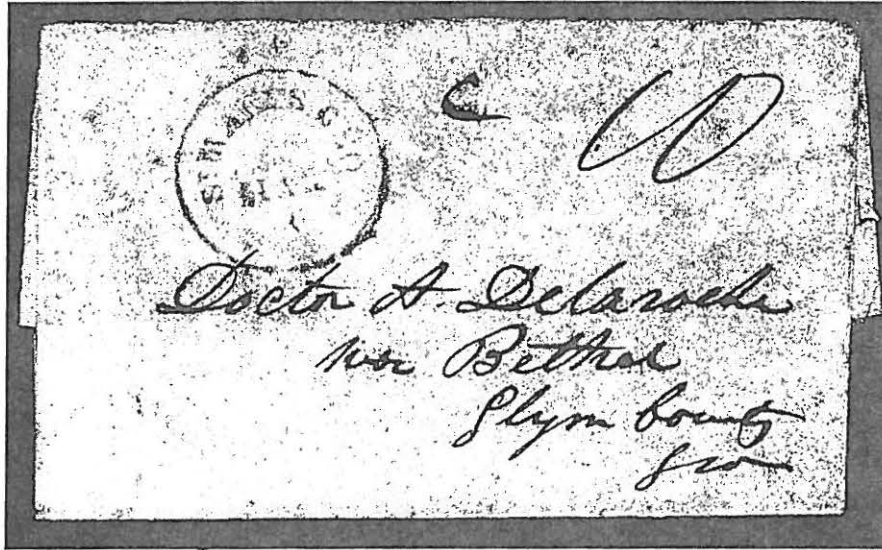 ST MARYS
10
Doctor A. Delaroche
Bethel
Glynn County
Geo